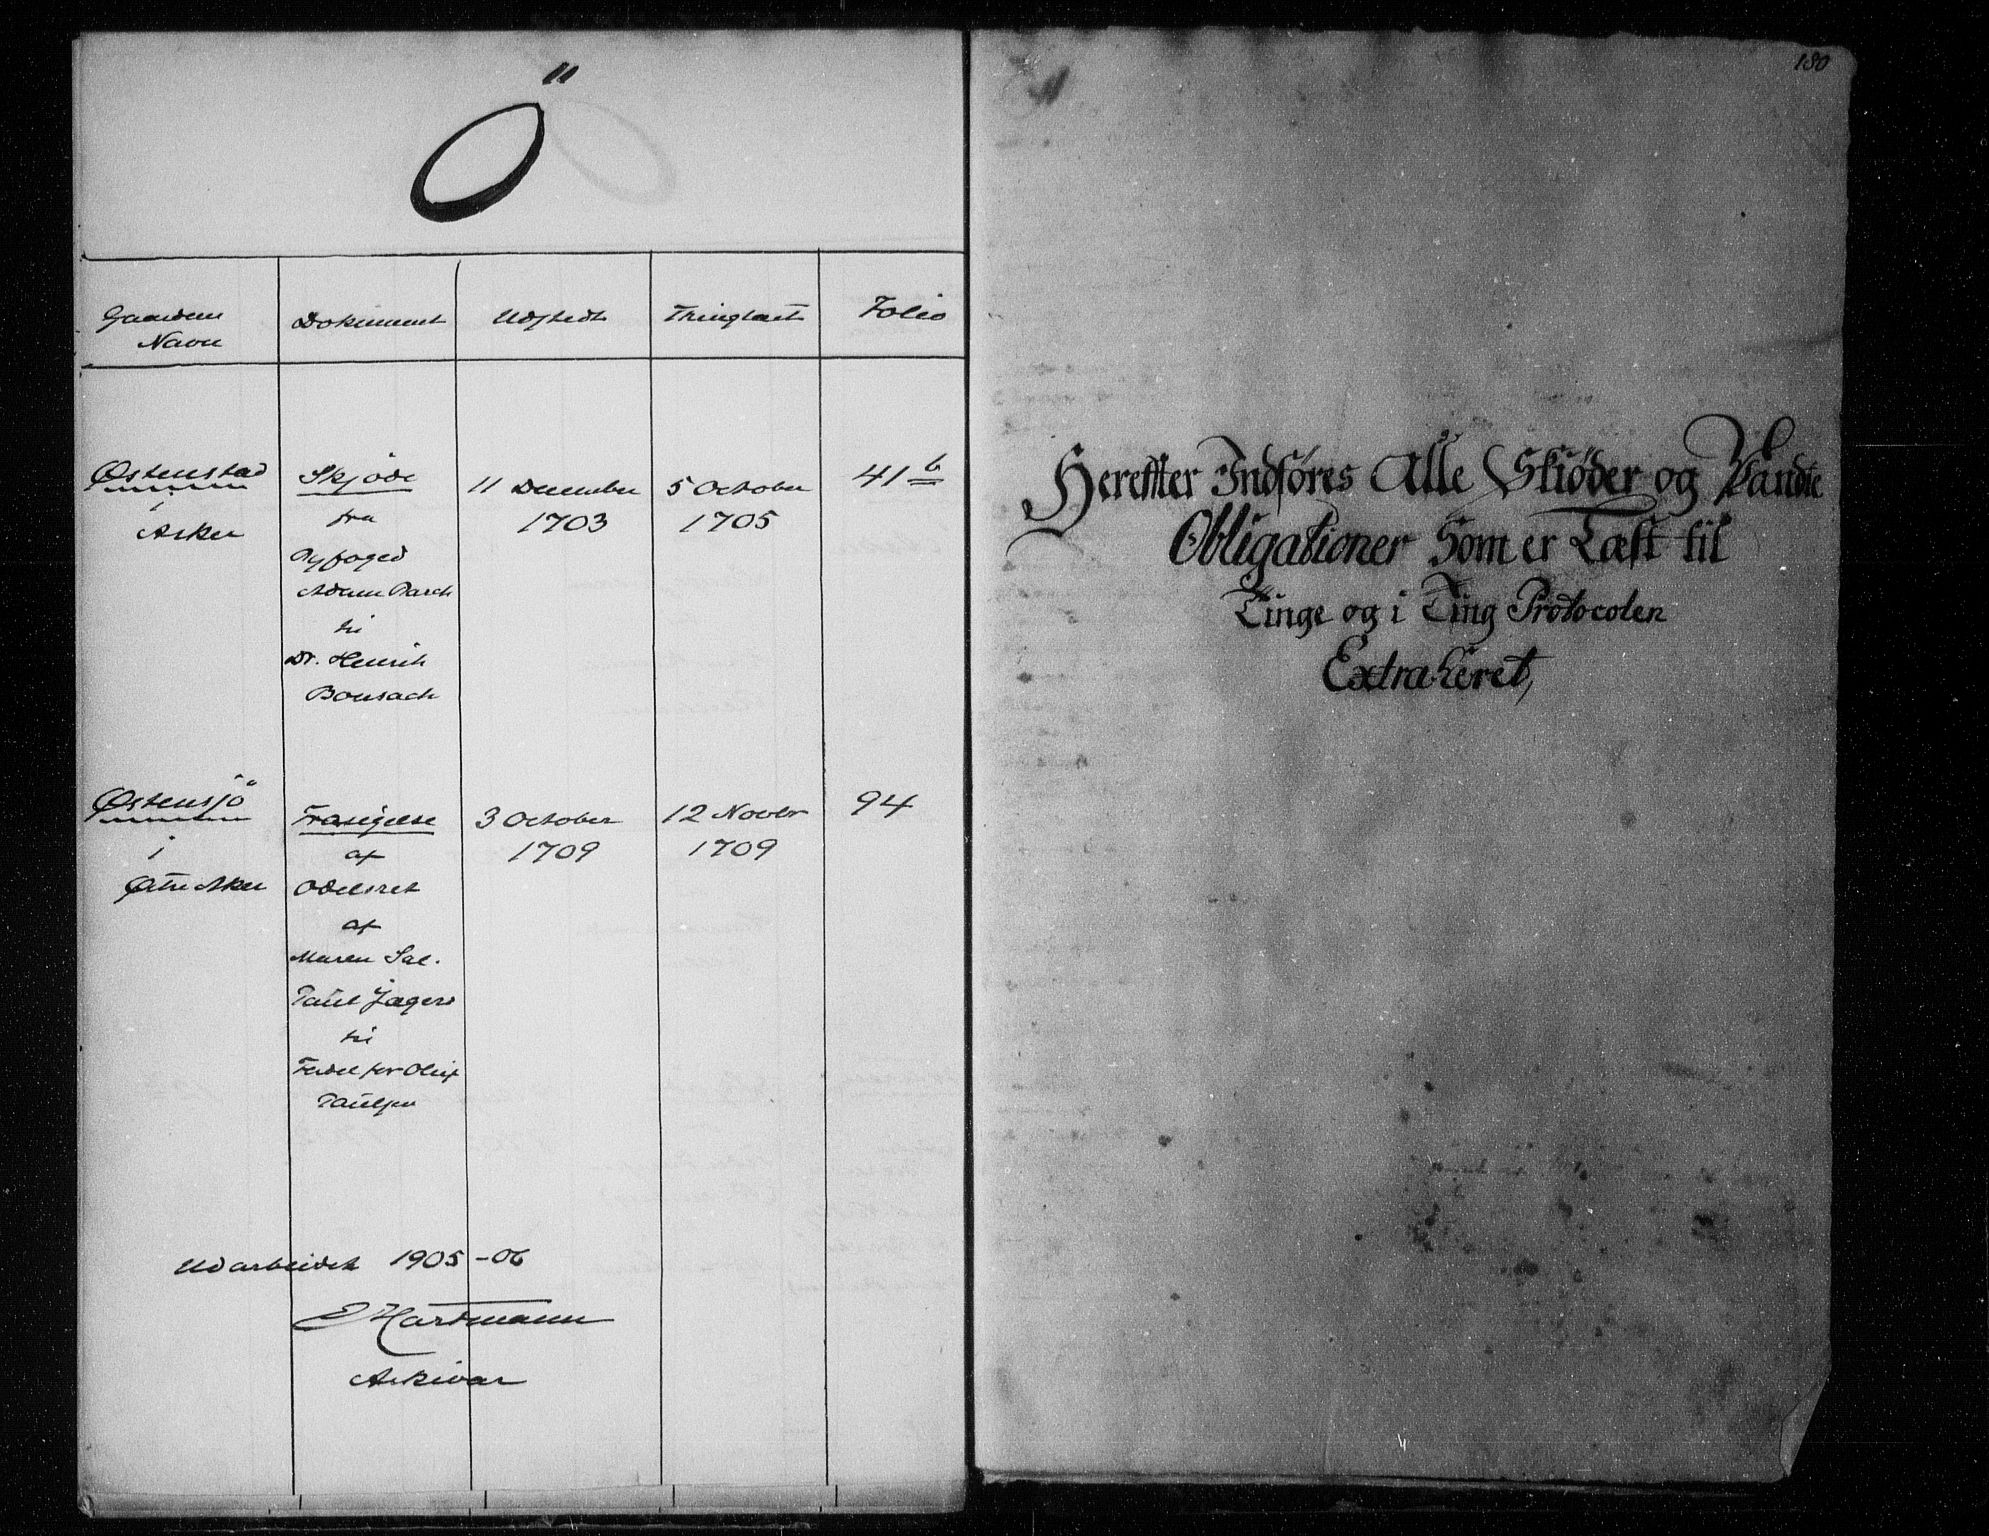 Ö
Gaardens Navn | Dokument | Udstedt | Thinglæst | Folio
Østenstad
i
Asker
Skjøde
fra
Byfoged
Adam Barch
til
Dr. Henrik
11 December
1703
5 October
1705
41 b
Østensjö
i
Østre Aker
Frasigelse
af
Odelsret
af
Maren Sal.
Paul Jægers
til
Fordel for Oluf
Paulsen
3 October
1709
12 Novbr
1709
94
Udarbeidet 1905-06
E Hartmann
Arkivar
180
Herefter Indføres Alle Skiøder og Pandte
Obligationer Som er Læst til
Tinge og i Ting Protocolen
Extraheret,